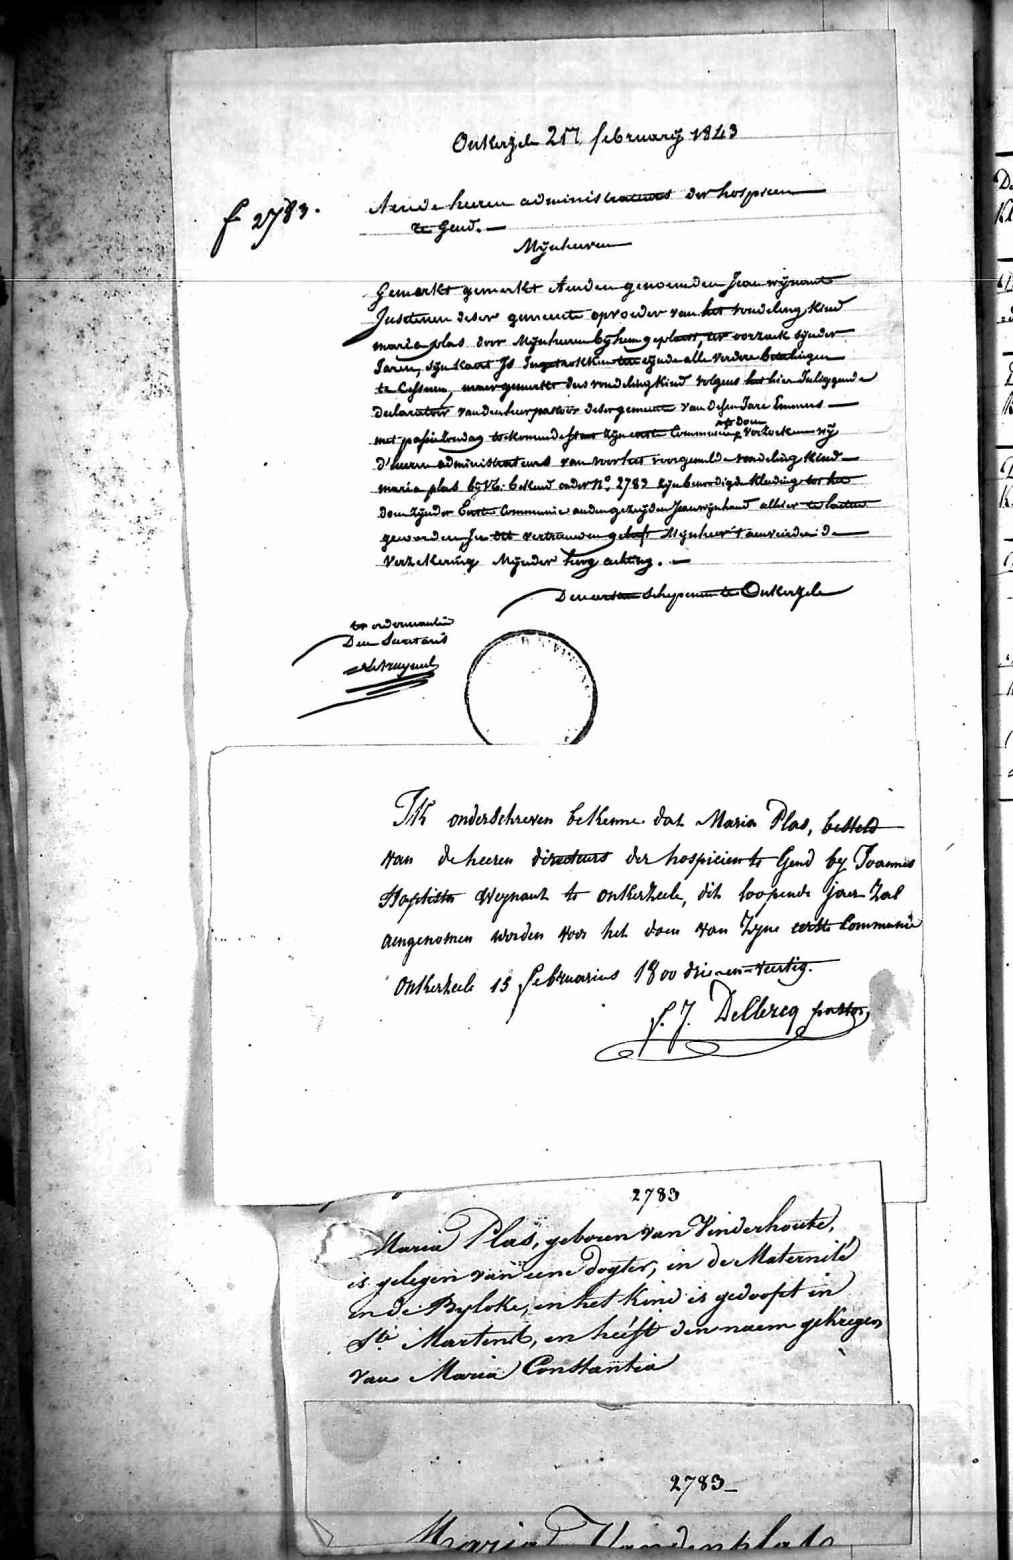 Onkerzele 21 februarij 1843
f 2783.
Aen de heeren administrateurs der hospicen
te Gend.
Mijnheeren
Gemerkt gemerkt Aenden genoemden Jean wijnant
deser gemeente opvoeder van het vondeling kind
maria plas door Mijnheeren bij hem geplaest, ter oorzaek sijnder
Jaeren, sijn kaert Is Ingetrokken ten eijnde alle verdere betalingen
te Cesseren, maer gemerkt dees vondeling kind volgens het hier Inliggende
declaratoir van den heer pastoor deser gemeente van desen Jare
met passie sondag toekomende staet zijn eerste Communie te doen versoeken wij
d'heeren administrateurs van voor het voorgemelde vondeling kind
maria plas bij VL. bekend onder N.º 2783 zijn benoodigde kleeding tot het
doen zijnder Eerste Communie aen den gezeijden Jean wijnhand alhier te laeten
geworden, In dit vertrouwen gelieft Mijnheer's aenveirden de
verzekering Mijnder hoog achting.
Den eersten schepenen te Onkerzele
ter ordonnantie
Den Secretaris
Ik onderschreven bekenne dat Maria Plas, besteld
van de heeren directeurs der hospicien te Gend by Joannes
Baptiste Weynant te onkerzeele, dit loopende jaer zal
aengenomen worden voor het doen van Zyne eerste Communie
onkerzeele 15 februarius 1800 drie-en-veertig.
f. J. DeClercq pastor,
2783
Maria Plas, geboren van Vinderhoute,
is gelegen van eene dogter, in de Maternité
in de Byloke, en het kind is gedoopt in
Ste Martens, en heeft den naem gekregen
van Maria Constantia
2783
Maria Vandenplas